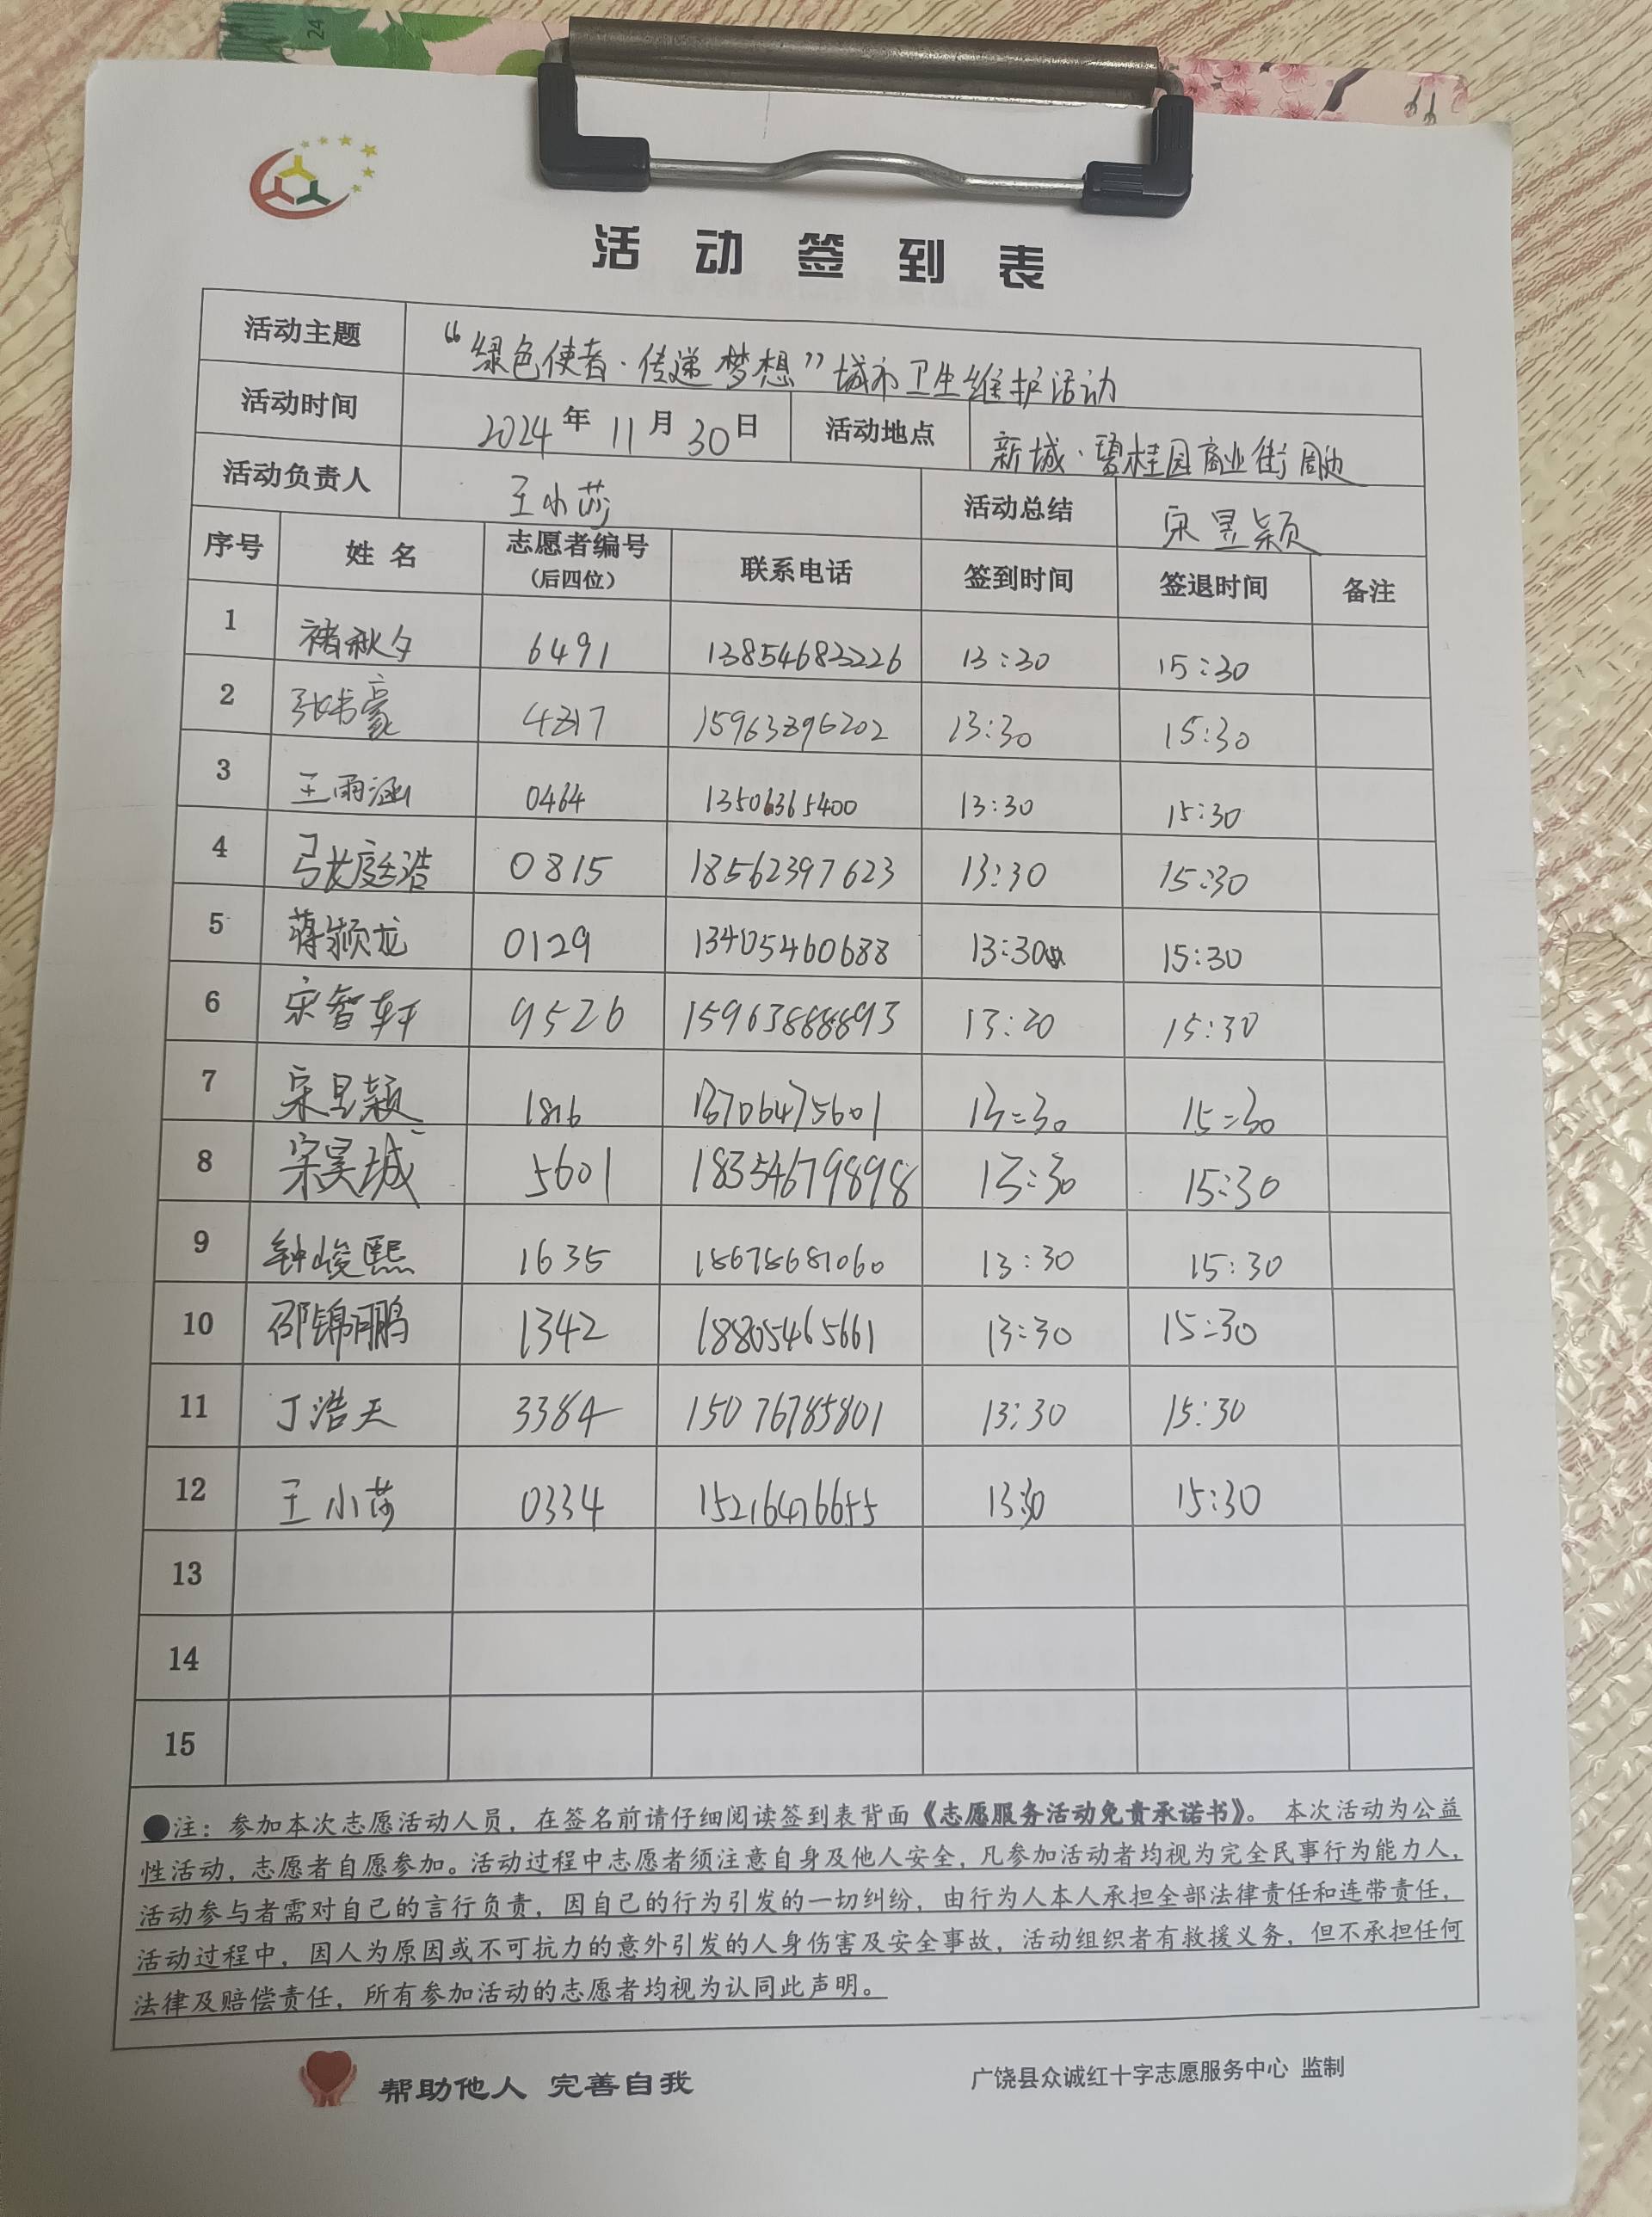 24
活动签到表
活动主题 “绿色使者·传递梦想”城市卫生维护活动
活动时间 2024年11月30日 活动地点 新城·碧桂园商业街周边
活动负责人 王小莎 活动总结 宋昱颖
序号 姓名 志愿者编号（后四位） 联系电话 签到时间 签退时间 备注
1 褚秋夕 6491 13854683226 13:30 15:30
2 15963896202 13:30 15:30
3 王雨涵 0464 13506365400 13:30 15:30
4 张庭浩 0815 18562397623 13:30 15:30
5 蒋颖龙 0129 13405460688 13:30 15:30
6 宋智轩 9526 15963888893 13:20 15:30
7 宋昱颖 1816 13706475601 13:30 15:30
8 宋昊城 5601 18354679898 13:30 15:30
9 钟峻熙 1635 18678681060 13:30 15:30
10 邵锦鹏 1342 18805465661 13:30 15:30
11 丁浩天 3384 15076785801 13:30 15:30
12 王小莎 0334 15216476655 13:30 15:30
13
14
15
●注：参加本次志愿活动人员，在签名前请仔细阅读签到表背面《志愿服务活动免责承诺书》。本次活动为公益
性活动，志愿者自愿参加。活动过程中志愿者须注意自身及他人安全，凡参加活动者均视为完全民事行为能力人，
活动参与者需对自己的言行负责，因自己的行为引发的一切纠纷，由行为人本人承担全部法律责任和连带责任，
活动过程中，因人为原因或不可抗力的意外引发的人身伤害及安全事故，活动组织者有救援义务，但不承担任何
法律及赔偿责任，所有参加活动的志愿者均视为认同此声明。
帮助他人 完善自我
广饶县众诚红十字志愿服务中心 监制